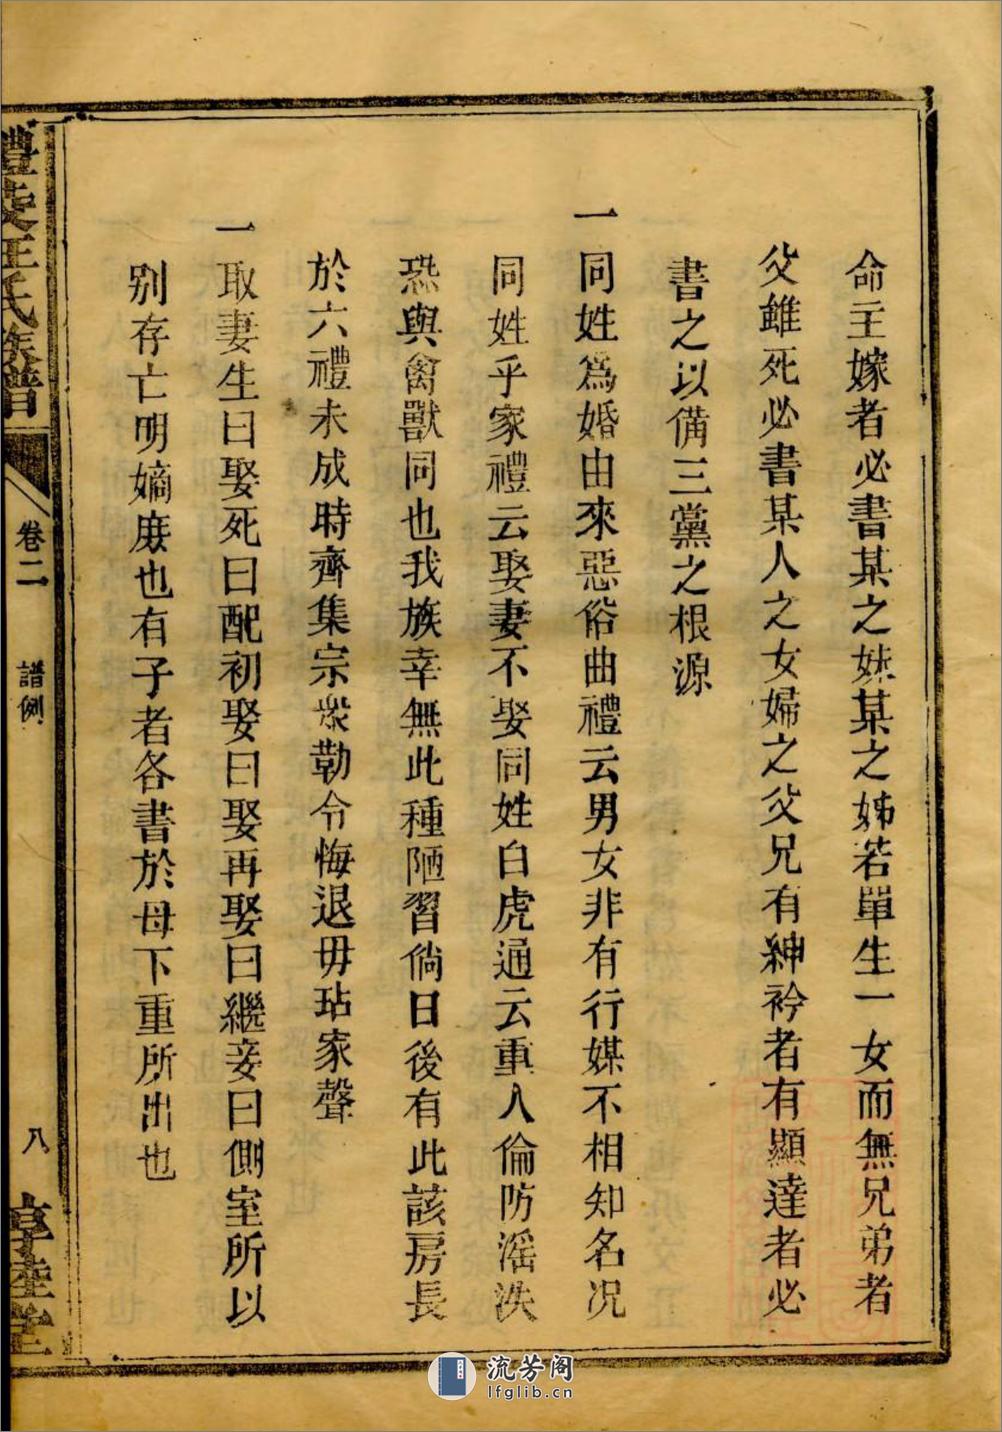 命主嫁者必書某之妹某之姊若單生一女而無兄弟者
父雖死必書某人之女婦之父兄有紳衿者有顯達者必
書之以備三黨之根源
一同姓爲婚由來惡俗曲禮云男女非有行媒不相知名况
同姓乎家禮云娶妻不娶同姓白虎通云重人倫防滛泆
恐與禽獸同也我族幸無此種陋習倘日後有此該房長
於六禮未成時齊集宗衆勒令悔退毋玷家聲
一取妻生曰娶死曰配初娶曰娶再娶曰繼妾曰側室所以
别存亡明嫡庶也有子者各書於母下重所出也
醴陵汪氏族譜
卷二
譜例
八
敦睦堂
流芳阁
lfglib.cn